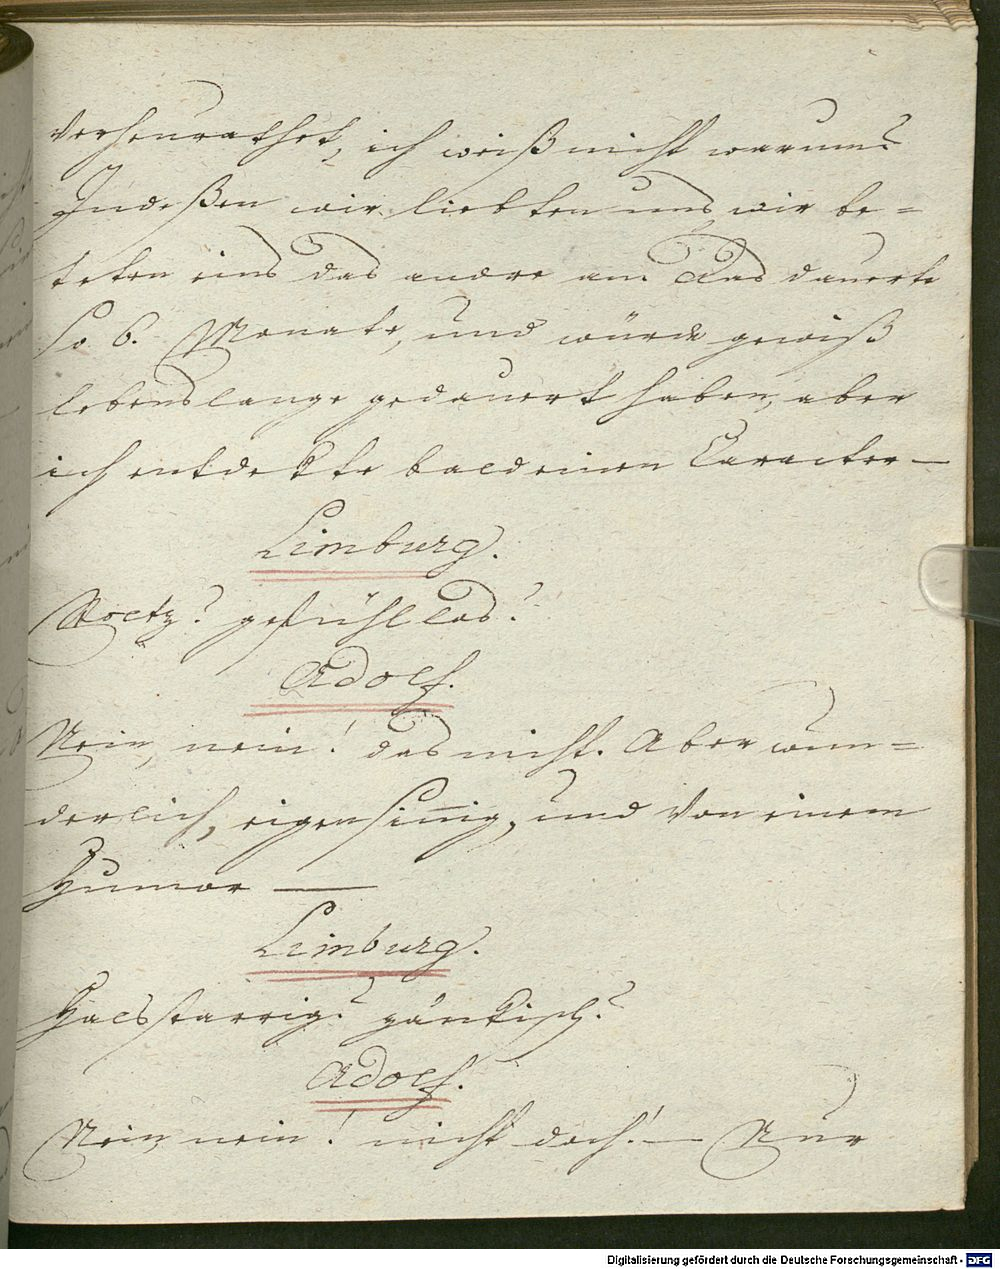 verheurathet, ich weiß nicht warum?
Indeßen wir liebten uns, wir be=
teten eins das andre an. Das dauerte
so 6. Monate, und würde gewiß
lebenslange gedauert haben, aber
ich entdekte bald einen Caracter —
Limburg.
Stolz? gefühllos?
Adolf.
Nein, nein! das nicht. Aber wun=
derlich, eigensinnig, und von einem
Humor —
Limburg.
Halsstarrig? zänkisch?
Adolf.
Nein, nein! nicht doch! — Nur
Digitalisierung gefördert durch die Deutsche Forschungsgemeinschaft - DFG